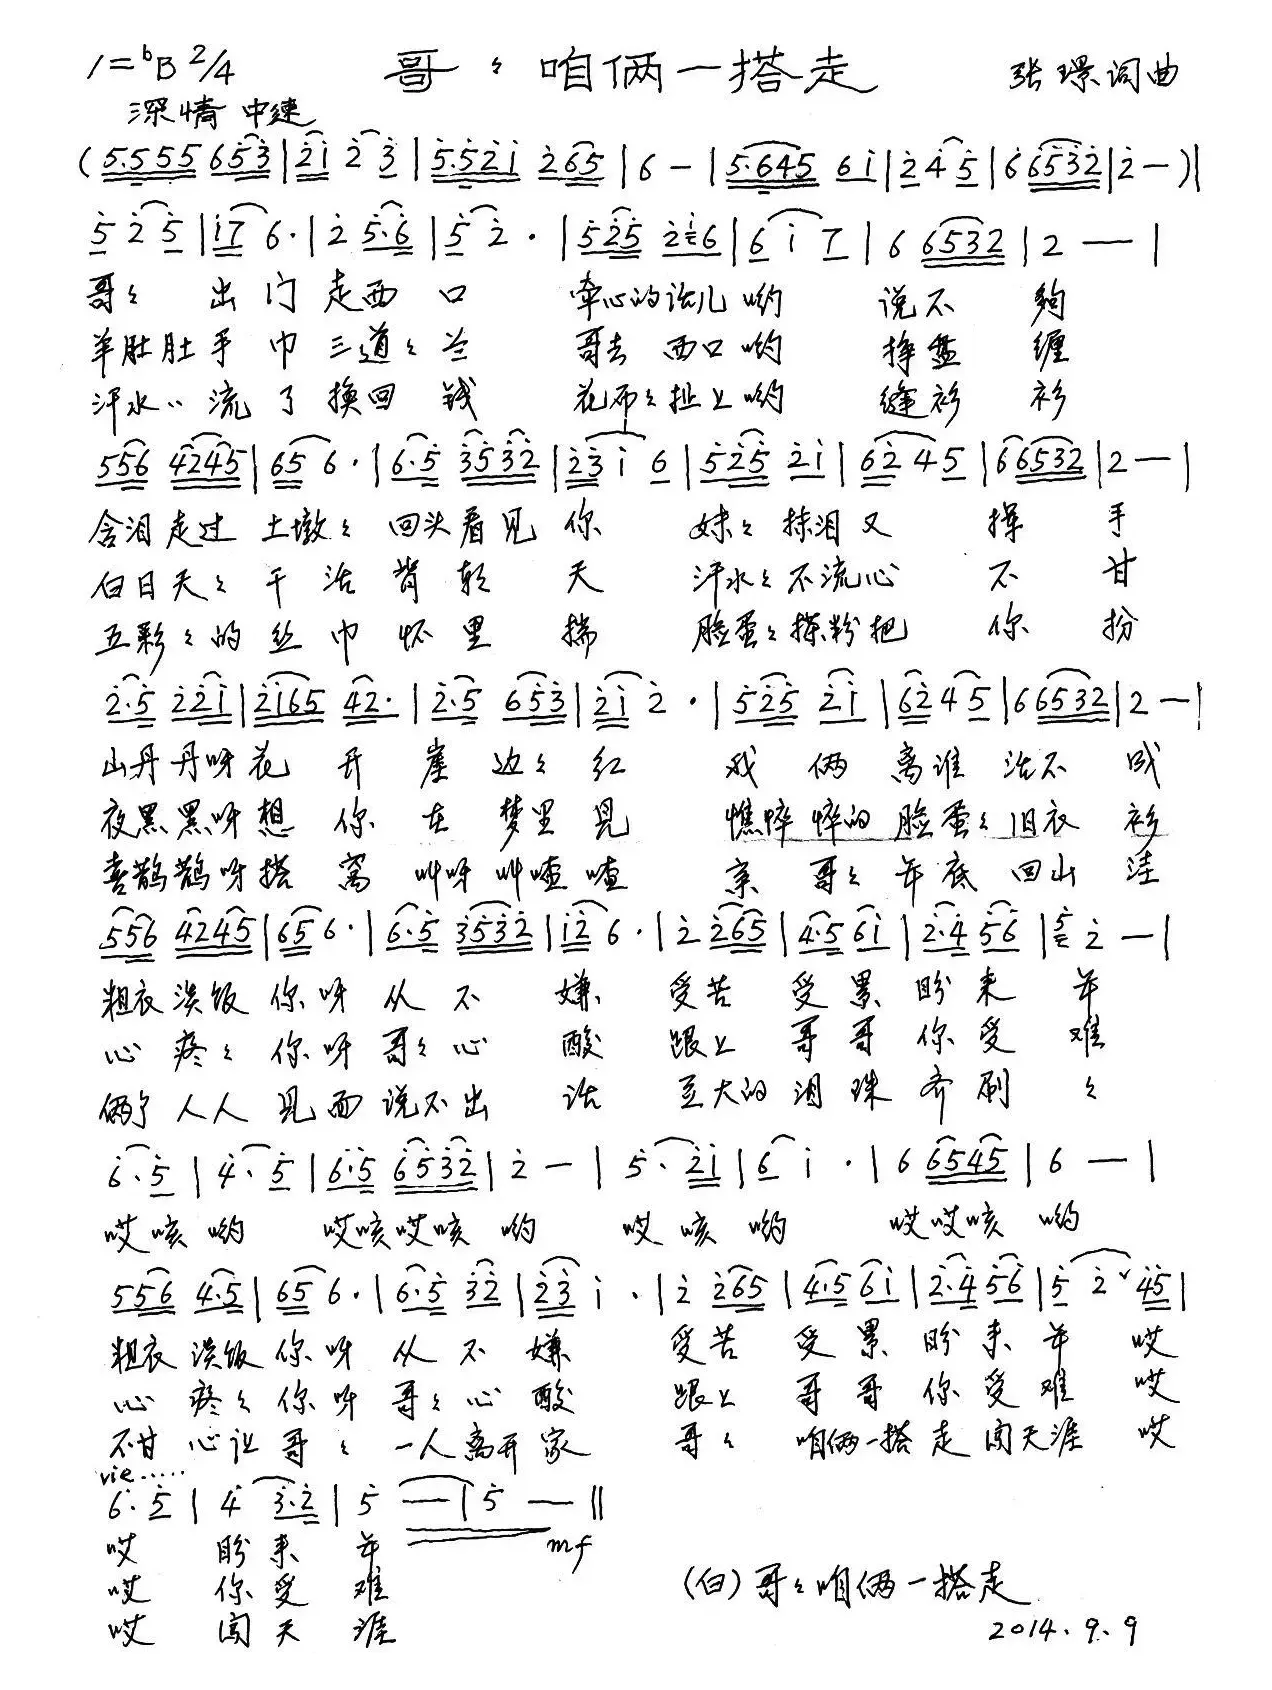 1=ᵇB 2/4 哥〻咱俩一搭走 张璟词曲
深情 中速
(5.555 653|21 2 3|5.521 265|6 —|5.645 61|2 4 5|6 6532|2 —)|
5 2 5|17 6.|2 5.6|5 2.|525 216|6 1 7|6 6532|2 — —|
哥〻 出门走西口 牵心的话儿哟 说不够
羊肚肚手巾三道〻兰 哥去西口哟 挣盘缠
汗水〻流了换回钱 花布〻扯上哟 缝衫衫
556 4245|65 6.|6.5 3532|23 1 6|525 21|62 45|66532|2 —|
含泪走过土墩〻回头看见你 妹〻抹泪又挥手
白日天〻干活背朝天 汗水〻不流心不甘
五彩〻的丝巾怀里揣 脸蛋〻搽粉把你扮
2.5 221|2165 42.|2.5 653|21 2.|525 21|6245|66532|2 —|
山丹丹呀花开崖边〻红 我俩离谁活不成
夜黑黑呀想你在梦里见 憔悴悴的脸蛋〻旧衣衫
喜鹊鹊呀搭窝叫呀叫喳喳 亲哥〻年底回山洼
556 4245|65 6.|6.5 3532|12 6.|2 265|4.5 61|2.4 56|5 2 —|
粗衣淡饭你呀从不嫌 受苦受累盼来年
心疼〻你呀哥〻心酸 跟上哥哥你受难
俩个人人见面说不出话 豆大的泪珠齐刷〻
6.5|4.5|6.5 6532|2 —|5.21|6 1.|6 6545|6 —|
哎咳哟 哎咳哎咳哟 哎咳哟 哎哎咳哟
556 4.5|65 6.|6.5 32|23 1.|2 265|4.5 61|2.4 56|5 2ˇ45|
粗衣淡饭你呀从不嫌 受苦受累盼来年 哎
心疼〻你呀哥〻心酸 跟上哥哥你受难 哎
不甘心让哥〻一人离开家 哥〻咱俩一搭走闯天涯 哎
vie……
6.5|4 3.2|5 —|5 —‖
哎 盼来年 mf
哎 你受难
哎 闯天涯
(白)哥〻咱俩一搭走
2014.9.9